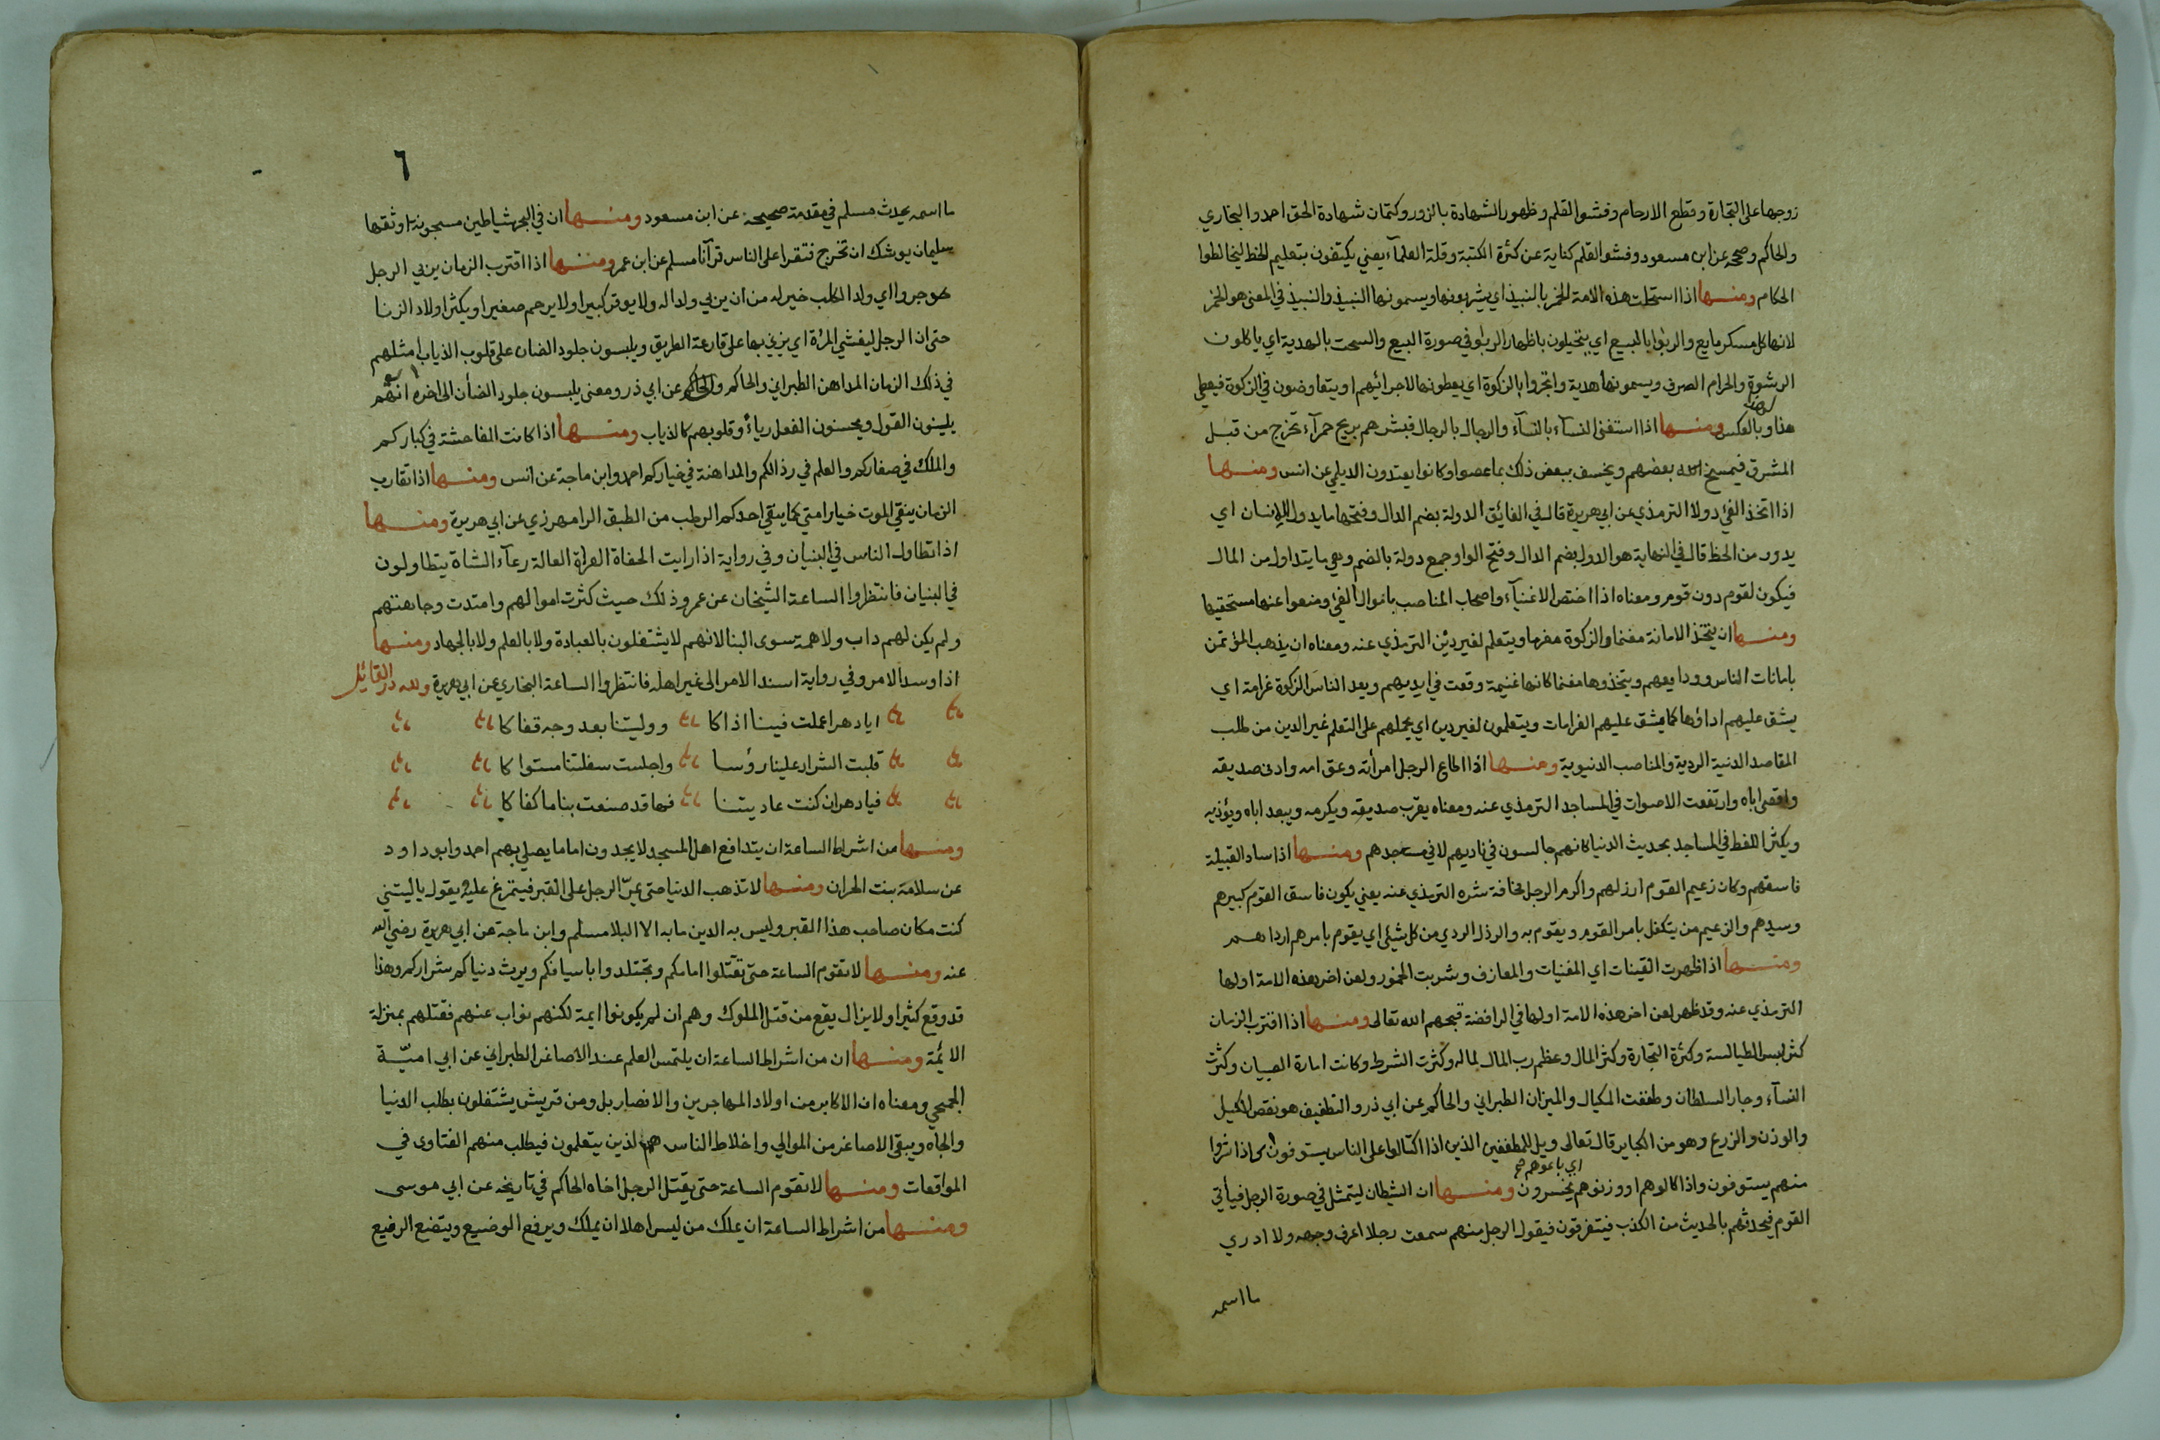 زوجها على التجارة وقطع الارحام وفشوا القلم وظهور الشهادة بالزور وكتمان شهادة الحق احمد والبخاري
والحاكم وصححه عن ابن مسعود وفشو القلم كناية عن كثرة الكتبة وقلة العلمآء يعني يكتفون بتعليم الخط ليخالطوا
الحكام ومنـها اذا استحلت هذه الامة الخمر بالنبيذ اي يشربونها ويسمونها النبيذ والنبيذ في المعنى هو الخمر
لانها كل مسكر مايع والربوا بالبيع اي يتحيلون باظهار الربو في صورة البيع والسحت بالهدية اي ياكلون
الرشوة والحرام الصرف ويسمونها هدية واتجروا بالزكوة اي يعطونها لاجرائيهم او يتعاوضون في الزكوة فيعطي
هذا لهذا وبالعكس ومنـها اذا استغنى النسآء بالنسآء والرجال بالرجال فبشرهم بريح حمرآء تخرج من قبل
المشرق فيمسخ الله بعضهم ويخسف ببعض ذلك بما عصوا وكانوا يعتدون الديلمي عن انس ومنـها
اذا اتخذ الفئ دولا الترمذي عن ابي هريرة قال في الفايق الدولة بضم الدال وفتحها ما يدول للانسان اي
يدور من الحظ قال في النهاية هو الدول بضم الدال وفتح الواو جمع دولة بالضم وهي ما يتداول من المال
فيكون لقوم دون قوم ومعناه اذا اختص الاغنيآء واصحاب المناصب باموال الفئ ومنعوا عنها مستحقيها
ومنـها ان يتخذ الامانة مغنما والزكوة مغرما ويتعلم لغير دين الترمذي عنه ومعناه ان يذهب المؤتمن
بامانات الناس وودايعهم ويتخذوها مغنما كانها غنيمة وقعت في ايديهم ويعد الناس الزكوة غرامة اي
يشق عليهم اداؤها كما يشق عليهم الغرامات ويتعلمون لغير دين اي يحملهم على التعلم غير الدين من طلب
المقاصد الدنية الردية والمناصب الدنيوية ومنـها اذا اطاع الرجل امرأته وعق امه وادنى صديقه
واقصى اباه وارتفعت الاصوات في المساجد الترمذي عنه ومعناه يقرب صديقه ويكرمه ويبعد اباه ويؤذيه
ويكثر اللغط في المساجد بحديث الدنيا كانهم جالسون في ناديهم لا في مساجدهم ومنـها اذا ساد القبيلة
فاسقهم وكان زعيم القوم ارذلهم واكرم الرجل مخافة شره الترمذي عنه يعني يكون فاسق القوم كبيرهم
وسيدهم والزعيم من يتكفل بامر القوم ويقوم به والرذل الردي من كل شيئ اي يقوم بامرهم ارداهم
ومنـها اذا ظهرت القينات اي المغنيات والمعازف وشربت الخمور ولعن اخر هذه الامة اولها
الترمذي عنه وقد ظهر لعن اخر هذه الامة اولها في الرافضة قبحهم الله تعالى ومنـها اذا اقترب الزمان
كثر لبس الطيالسة وكثرة التجارة وكثر المال وعظم رب المال لماله وكثرت الشرط وكانت امارة الصبيان وكثرت
النسآء وجار السلطان وطففت المكيال والميزان الطبراني والحاكم عن ابي ذر والتطفيف هو نقص الكيل
والوزن والزرع وهو من الكباير قال تعالى ويل للمطففين الذين اذا اكتالوا على الناس يستوفون اي اذا شروا
منهم يستوفون واذا كالوهم او وزنوهم اي باعوهم صح يخسرون ومنـها ان الشيطان ليتمثل في صورة الرجل فيأتي
القوم فيحدثهم بالحديث من الكذب فيتفرقون فيقول الرجل منهم سمعت رجلا اعرف وجهه ولا ادري
ما اسمه
٦
ما اسمه يحدث مسلم في مقدمة صحيحه عن ابن مسعود ومنـها ان في البحر شياطين مسجونة اوثقها
سليمان يوشك ان تخرج فتقرا على الناس قرآنا مسلم عن ابن عمر ومنـها اذا اقترب الزمان يربي الرجل
جروا اي ولد الكلب خير له من ان يربي ولدا له ولا يوقر كبيرا ولا يرحم صغيرا ويكثر اولاد الزنا
حتى ان الرجل ليغشي المرأة اي يزني بها على قارعة الطريق ويلبسون جلود الضان على قلوب الذياب امثلهم
في ذلك الزمان المداهن الطبراني والحاكم عن ابي ذر ومعنى يلبسون جلود الضأن الى اخره انهم
يلينون القول ويحسنون الفعل رياء وقلوبهم كالذياب ومنـها اذا كانت الفاحشة في كباركم
والملك في صغاركم والعلم في رذالكم والمداهنة في خياركم احمد وابن ماجة عن انس ومنـها اذا تقارب
الزمان ينتقي الموت خيار امتي كما ينتقي احدكم الرطب من الطبق الرامهرزي عن ابي هريرة ومنـها
اذا تطاول الناس في البنيان وفي رواية اذا رايت الحفاة العراة العالة رعآء الشاة يتطاولون
في البنيان فانتظروا الساعة الشيخان عن عمر وذلك حيث كثرت اموالهم وامتدت وجاهتهم
ولم يكن لهم داب ولا همة سوى البنا لانهم لا يشتغلون بالعبادة ولا بالعلم ولا بالجهاد ومنـها
اذا وسد الامر وفي رواية اسند الامر الى غير اهله فانتظروا الساعة البخاري عن ابي هريرة ولله در القائل
ايا دهر اعملت فينا اذاكا وولیتنا بعد وجه قفاكا
قلبت الشرار علينا رؤسا واجلست سفلتنا مستواكا
فيا دهر ان كنت عاديتنا فها قد صنعت بنا ما كفاكا
ومنـها من اشراط الساعة ان يتدافع اهل المسجد لا يجدون اماما يصلي بهم احمد وابو داود
عن سلامة بنت الحران ومنـها لا تذهب الدنيا حتى يمر الرجل على القبر فيتمرغ عليه يقول يا ليتني
كنت مكان صاحب هذا القبر وليس به الدين ما به الا البلا مسلم وابن ماجة عن ابي هريرة رضي الله
عنه ومنـها لا تقوم الساعة حتى تقتلوا امامكم وتجتلدوا باسيافكم ويرث دنياكم شراركم وهذا
قد وقع كثيرا ولا يزال يقع من قتل الملوك وهم ان لم يكونوا ايمة لكنهم نواب عنهم فقتلهم بمنزلة
الائمة ومنـها ان من اشراط الساعة ان يلتمس العلم عند الاصاغر الطبراني عن ابي امية
الجمحي ومعناه ان الاكابر من اولاد المهاجرين والانصار بل ومن قريش يشتغلون بطلب الدنيا
والجاه ويبقى الاصاغر من الموالي واخلاط الناس هم الذين يتعلمون فيطلب منهم الفتاوى في
الواقعات ومنـها لا تقوم الساعة حتى يقتل الرجل اخاه الحاكم في تاريخه عن ابي موسى
ومنـها من اشراط الساعة ان يملك من ليس اهلا ان يملك ويرفع الوضيع ويتضع الرفيع